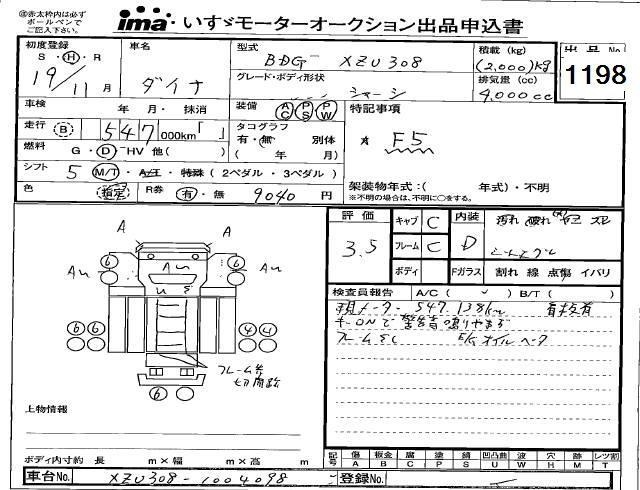 ㊟赤太枠内は必ず
ボールペンで
ご記入下さい。
ima いすゞモーターオークション出品申込書
初度登録
S・H・R
19年11月
車名
ダイナ
型式
BDG- XZU308
グレード・ボディ形状
シャーシ
積載(kg)
(2,000)kg
排気量(cc)
4,000cc
出品No.
1198
車検 年 月・抹消
装備 AC PS PW
特記事項
★ F5
走行 B 547000km「 」
タコグラフ
有・無 別体
( 年 月)
燃料 G・D・HV 他( )
シフト 5 M/T・A/T・特殊(2ペダル・3ペダル)
架装物年式:( 年式)・不明
※不明の場合は、不明に○をする。
色 指定 R券 有・無 9040円
評価 3.5
キャブ C 内装 D 汚れ 破れ ヤニ スレ
フレーム C
ボディ Fガラス 割れ 線 点傷 イバリ
検査員報告 A/C( ) B/T( )
現メーター 547,138km
キーONで警告音鳴りやまず
E/Gオイル
A A
6 6
Au Au Au
U
6 6 4 4
フレーム等
6
上物情報
ボディ内寸約 長 m×幅 m×高 m
記号 傷 A 板金 B 腐 C 塗 P 錆 S 凹凸曲 U 波 W 穴 H 痛 M レツ割 T
車台No. XZU308-1004098
登録No.